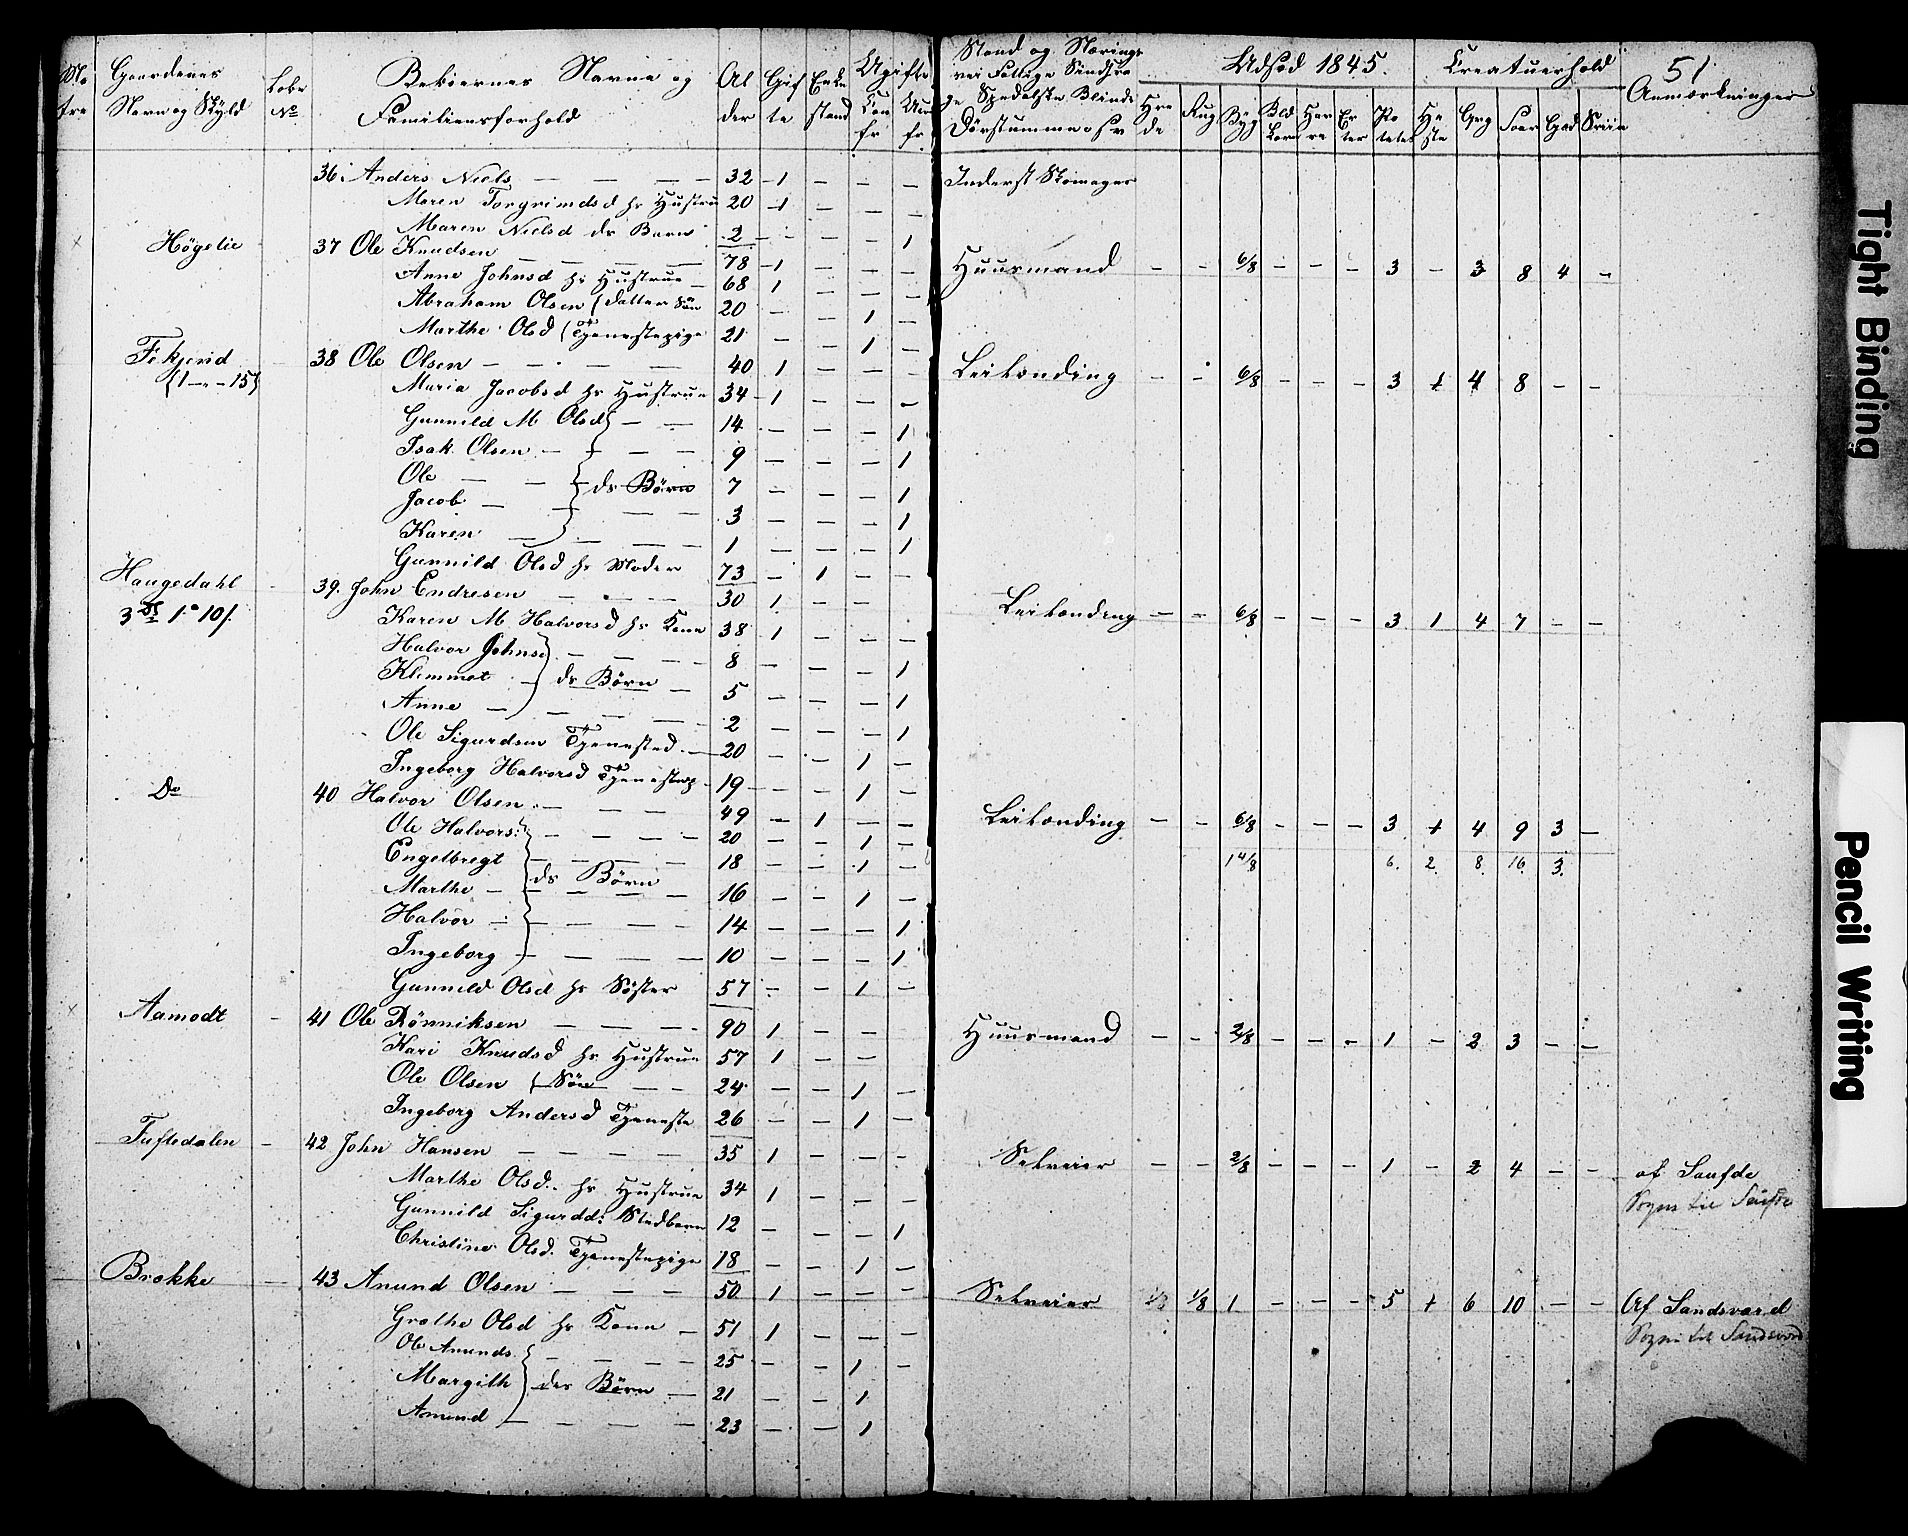 51.
Gaardenes Navn og Skyld | Løbe No | Beboernes Navne og Familiensforhold | Alder | Gifte | Enkestand | Ugifte Con fr | Ucon fr | Stand og Nærings vei Fattige Sindsva ge Spedalske Blinde Døvstumme osv | Udsæd 1845. Hvede | Rug | Byg | Bld Korn | Havre | Erter | Potetes | Creatuerhold Heste | Qvg | Faar | Gjed | Sviin | Anmærkninger
36 Anders Niels — — — 32 1 — — — Inderst Skomager
Maren Torgrimdsd hs Hustru 20 1 — — —
Maren Nielsd ds Barn 2 — — — 1
Høgelie 37 Ole Knudsen — — — 78 1 — — — Huusmand — — 6/8 — — — 3 — 3 8 4 —
Anne Johnsd hs Hustrue — 68 1 — — —
Abraham Olsen (Datter Søn 20 — — 1 —
Marthe Olsd (Tjenestepige 21 — — 1 —
38 Ole Olsen — — — — 40 1 — — — Leilænding — — 6/8 — — — 3 1 4 8 — —
{1 — „ — 15}
Maria Jacobsd hs Hustrue 34 1 — — —
Gunnild M Olsd — — 14 — — — 1
Isak Olsen — — — 9 — — — 1
Ole — — ds Børn 7 — — — 1
Jacob — — — 3 — — — 1
Karen — — — 1 — — — 1
Gunnild Olsd hs Moder 73 — 1 — —
Haugedahl 39. John Endresen — — — 30 1 — — Leilænding — — 6/8 — — — 3 1 4 7 — —
Karen M Halvorsd hs Kone 38 1 — — —
Halvor Johnse — — — 8 — — — 1
Klemmet — ds Børn — 5 — — — 1
Anne — — — — 2 — — — 1
Ole Sigurdsen Tjenested. — 20 — — 1 —
Ingeborg Halvorsd Tjenestep 19 — — 1 —
Do 40 Halvor Olsen — — — 49 — 1 — — Leilænding — — 6/8 — — — 3 1 4 9 3 —
Ole Halvors: — — — — 20 — — 1 —
1 4/8 6. 2 8 16 3.
Engelbregt — — — — 18 — — 1 —
Marthe — ds Børn 16 — — 1 —
Halvor — — — — — 14 — — — 1
Ingeborg — — — — 10 — — — 1
Gunnild Olsd hs Søster 57 — — 1 —
Aamodt — 41 Ole Rønniksen — — — 90 1 — — Huusmand — — 2/8 — — — 1 — 2 3 — —
Kari Knudsd hs Hustrue 57 1 — —
Ole Olsen {Søn — — 24 — — 1 —
Ingeborg Andersd Tjeneste 26 — — 1 —
Tuftedalen — 42 John Hansen — — — — 35 1 — — — Selveier — — 2/8 — — — 1 — 2 4 — — af Saufde
Sogn til Saufde
Marthe Olsd. hs Hustrue 34 1 — — —
Gunnild Sigurdd: Stedbarn 12 — — — 1
Christine Olsd. Tjenestepige 18 — — 1 —
Brokke — 43 Anund Olsen — — — 50 1 — — — Selveier 1/8 1/8 1 — — — 5 1 6 10 — — Af Sandsværd
Sogn til Sandsværd
Grothe Olsd hs Kone — 51 1 — — —
Ole Anunds. — — — — 25 — — 1 —
Margith des Børn — 21 — — 1
Anund — — — — 23 — — 1
Tight Binding
Pencil Writing